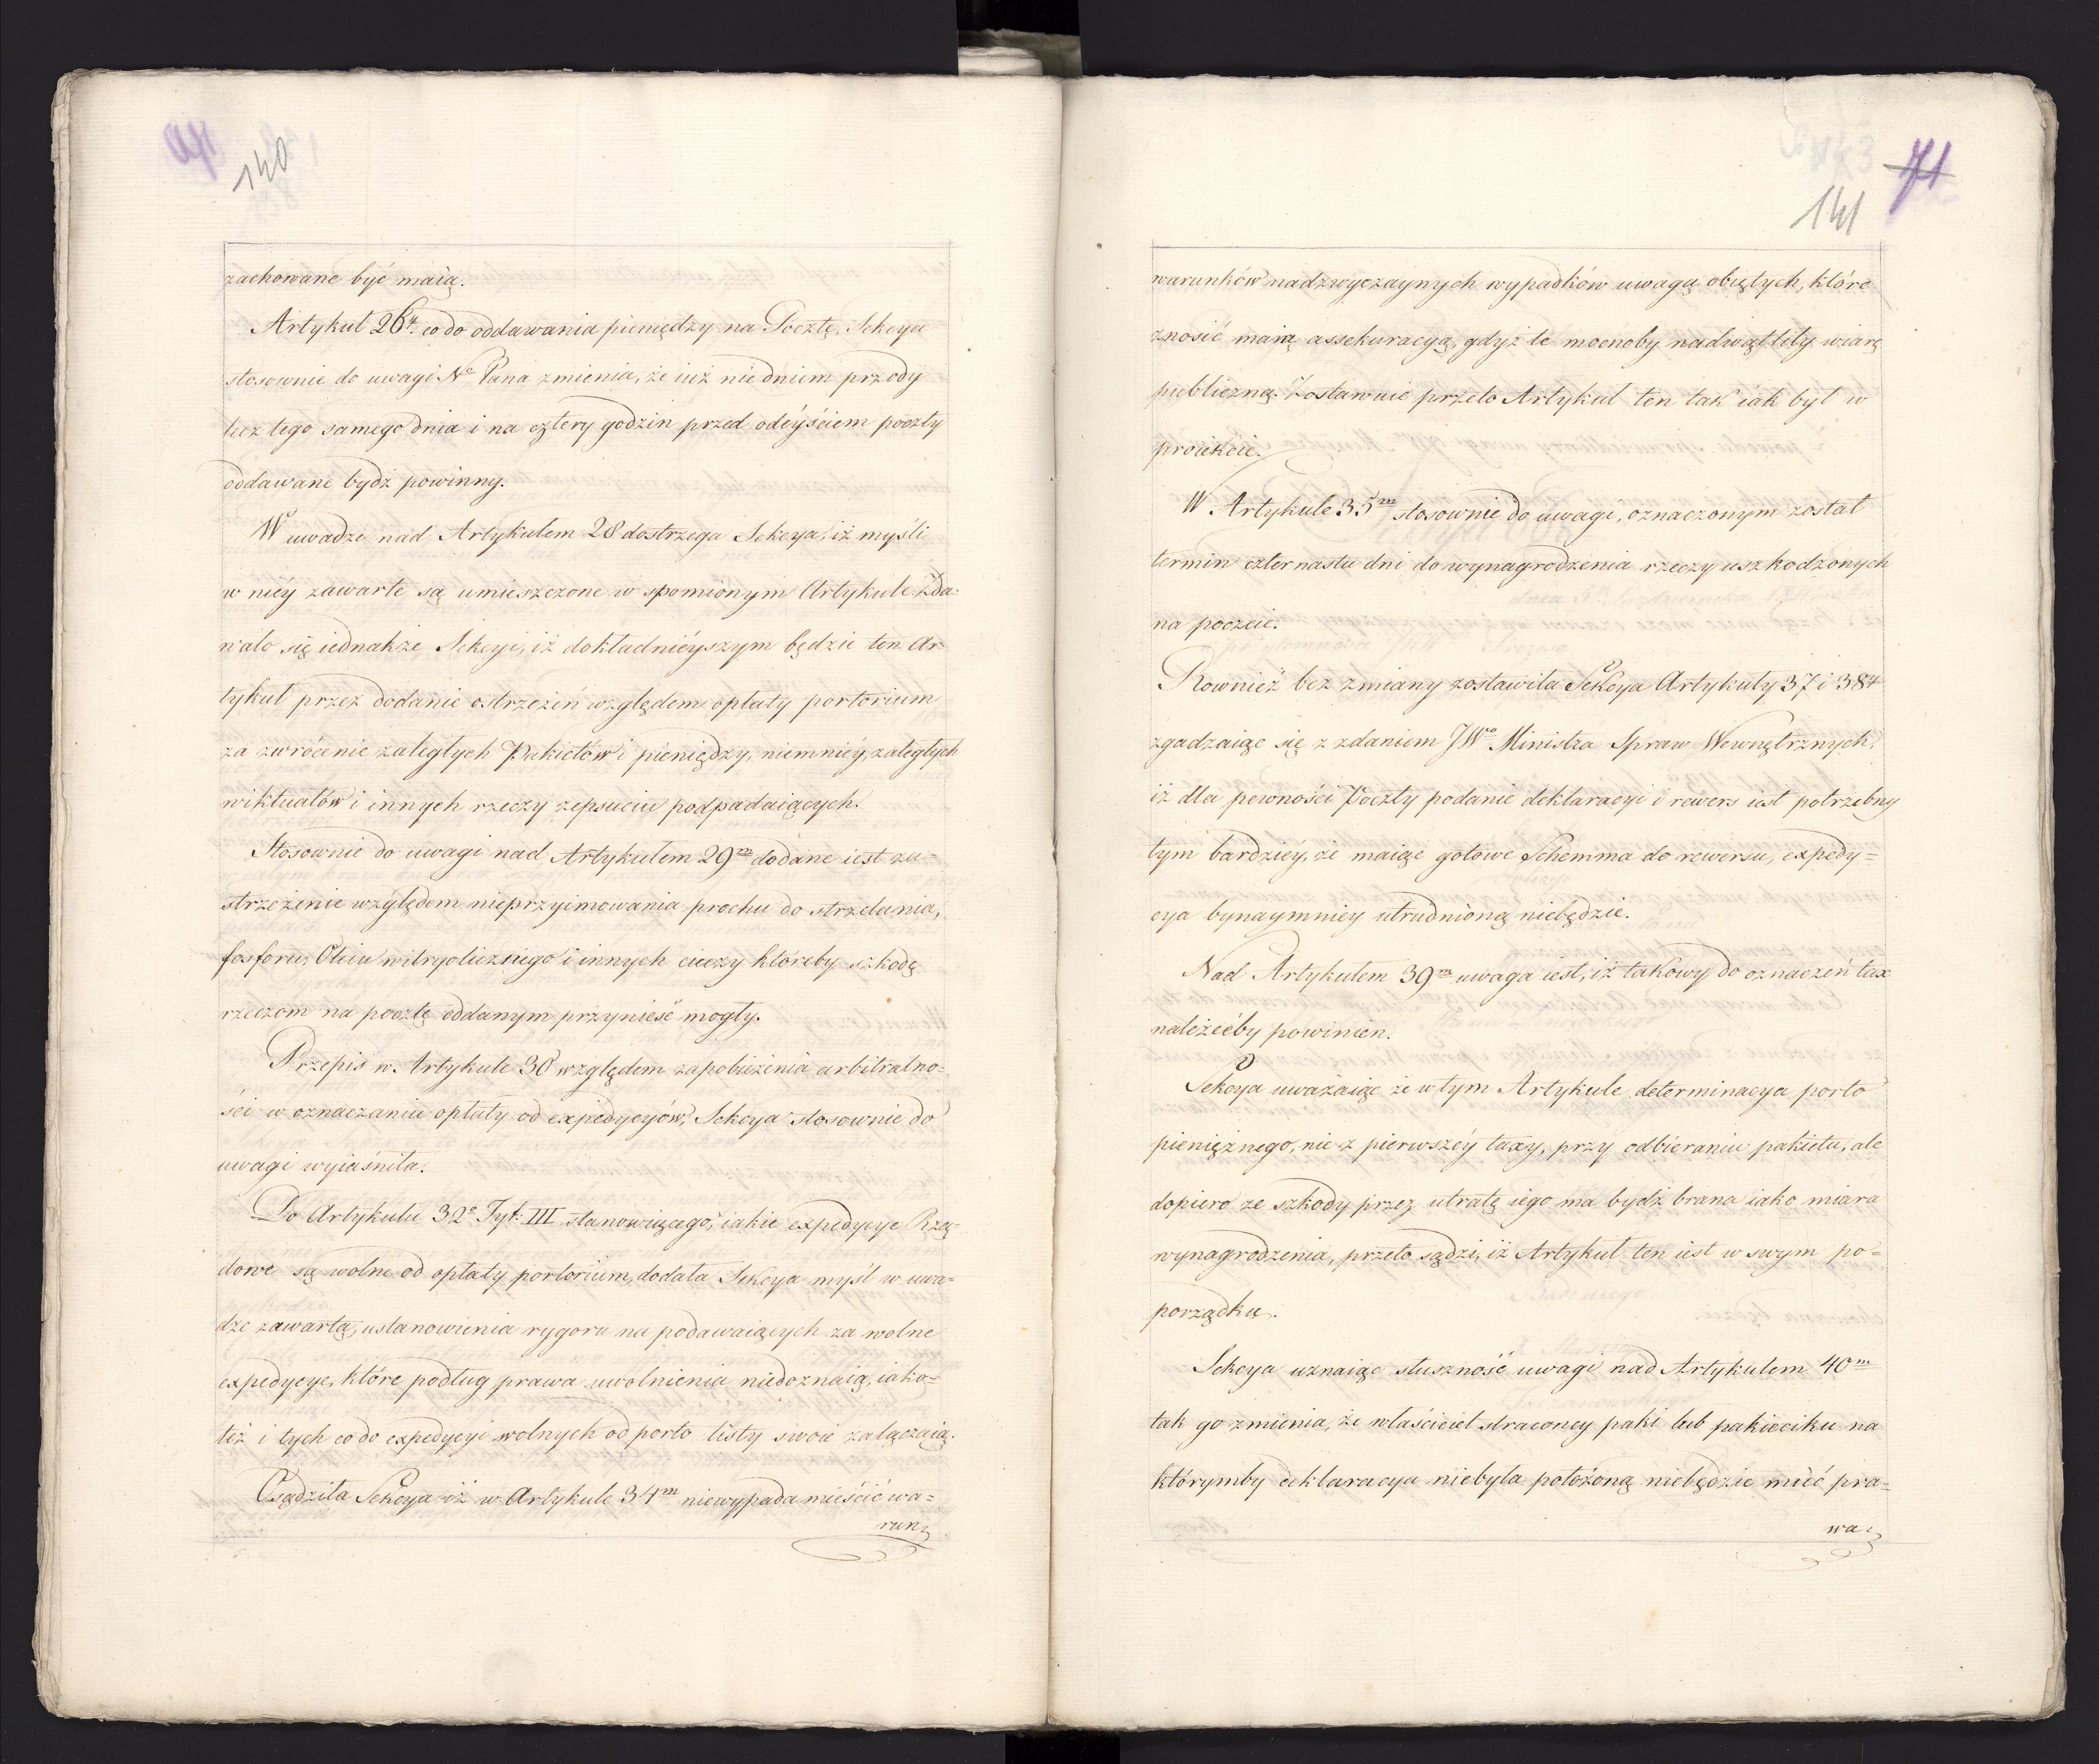 140
zachowane być maią.
Artykuł 26ty. co do oddawania pieniędzy na Pocztę, Sekcya
stosownie do uwagi Nο Pana zmienia, że iuż nie dniem przódy
lecz tego samego dnia i na cztery godzin przed odeyściem poczty
oddawane bydź powinny.
W uwadze nad Artykułem 28 dostrzega Sekcya, iż myśli
w niéy zawarte są umieszczone w spomionym Artykule. Zda-
wało się iednakże Sekcyi, iż dokładniéyszym będzie ten Ar-
tykuł przez dodanie ostrzeżeń względem opłaty portorium
za zwrócenie zaległych Pakietów i pieniędzy, niemniéy, zaległych
wiktuałów i innych rzeczy zepsuciu podpadaiących.
Stosownie do uwagi nad Artykułem 29m dodane iest za-
strzeżenie względem nieprzyimowania prochu do strzelania,
fosforu, Oleiu witryolicznego i innych cieczy któreby szkodę
rzeczom na pocztę oddanym przynieść mogły.
Przepis w Artykule 30 względem zapobieżenia arbitralno-
ści w oznaczaniu opłaty od expedycyów, Sekcya stosownie do
uwagi wyiaśniła.
Do Artykułu 32o Tyt: III stanowiącego, iakie expedycye Rzą-
dowe są wolne od opłaty portorium, dodała Sekcya myśl w uwa-
dze zawartą, ustanowienia rygoru na podawaiących za wolne
expedycye, które podług prawa uwolnienia niedoznaią, iako-
też i tych co do expedycyi wolnych od porto listy swoie załączaią.
Osądziła Sekcya iż w Artykule 34m niewypada mieścić wa-
run
71
141
warunków nadzwyczaynych wypadków uwagą obiętych, które
znosić maią assekuracyą, gdyż te mocnoby nadwątliły wiarę
publiczną. Zostawuie przeto Artykuł ten tak iak był w
proiekcie.
W Artykule 35m stosownie do uwagi, oznaczonym został
termin czternastu dni do wynagrodzenia rzeczy uszkodzonych
na poczcie.
Rownież bez zmiany zostawiła Sekcya Artykuły 37 i 38y
zgadzaiąc się z zdaniem JWo Ministra Spraw Wewnętrznych,
iż dla pewności Poczty podanie deklaracyi i rewers iest potrzebny
tym bardziey, że maiąc gotowe Schemma do rewersu, expedy-
cya bynaymniey utrudnioną niebędzie.
Nad Artykułem 39m uwaga iest, iż takowy do oznaczeń tax
należećby powinien.
Sekcya uważaiąc że w tym Artykule determinacya porto
pieniężnego, nie z pierwszéy taxy, przy odbieraniu pakietu, ale
dopiero ze szkody przez utratę iego ma bydź brana iako miara
wynagrodzenia, przeto sądzi, iż Artykuł ten iest w swym po-
porządku.
Sekcya uznaiąc słuszność uwagi nad Artykułem 40m
tak go zmienia, że właściciel straconey paki lub pakieciku na
którymby deklaracya niebyła położoną niebędzie mieć pra-
wa